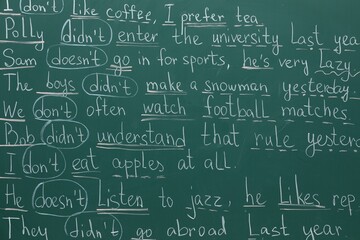 I don't like coffee, I prefer tea.
Polly didn't enter the university last yea
Sam doesn't go in for sports, he's very lazy
The boys didn't make a snowman yesterday.
We don't often watch football matches.
Bob didn't understand that rule yester
I don't eat apples at all.
He doesn't Listen to jazz, he likes rep
They didn't go abroad last year.